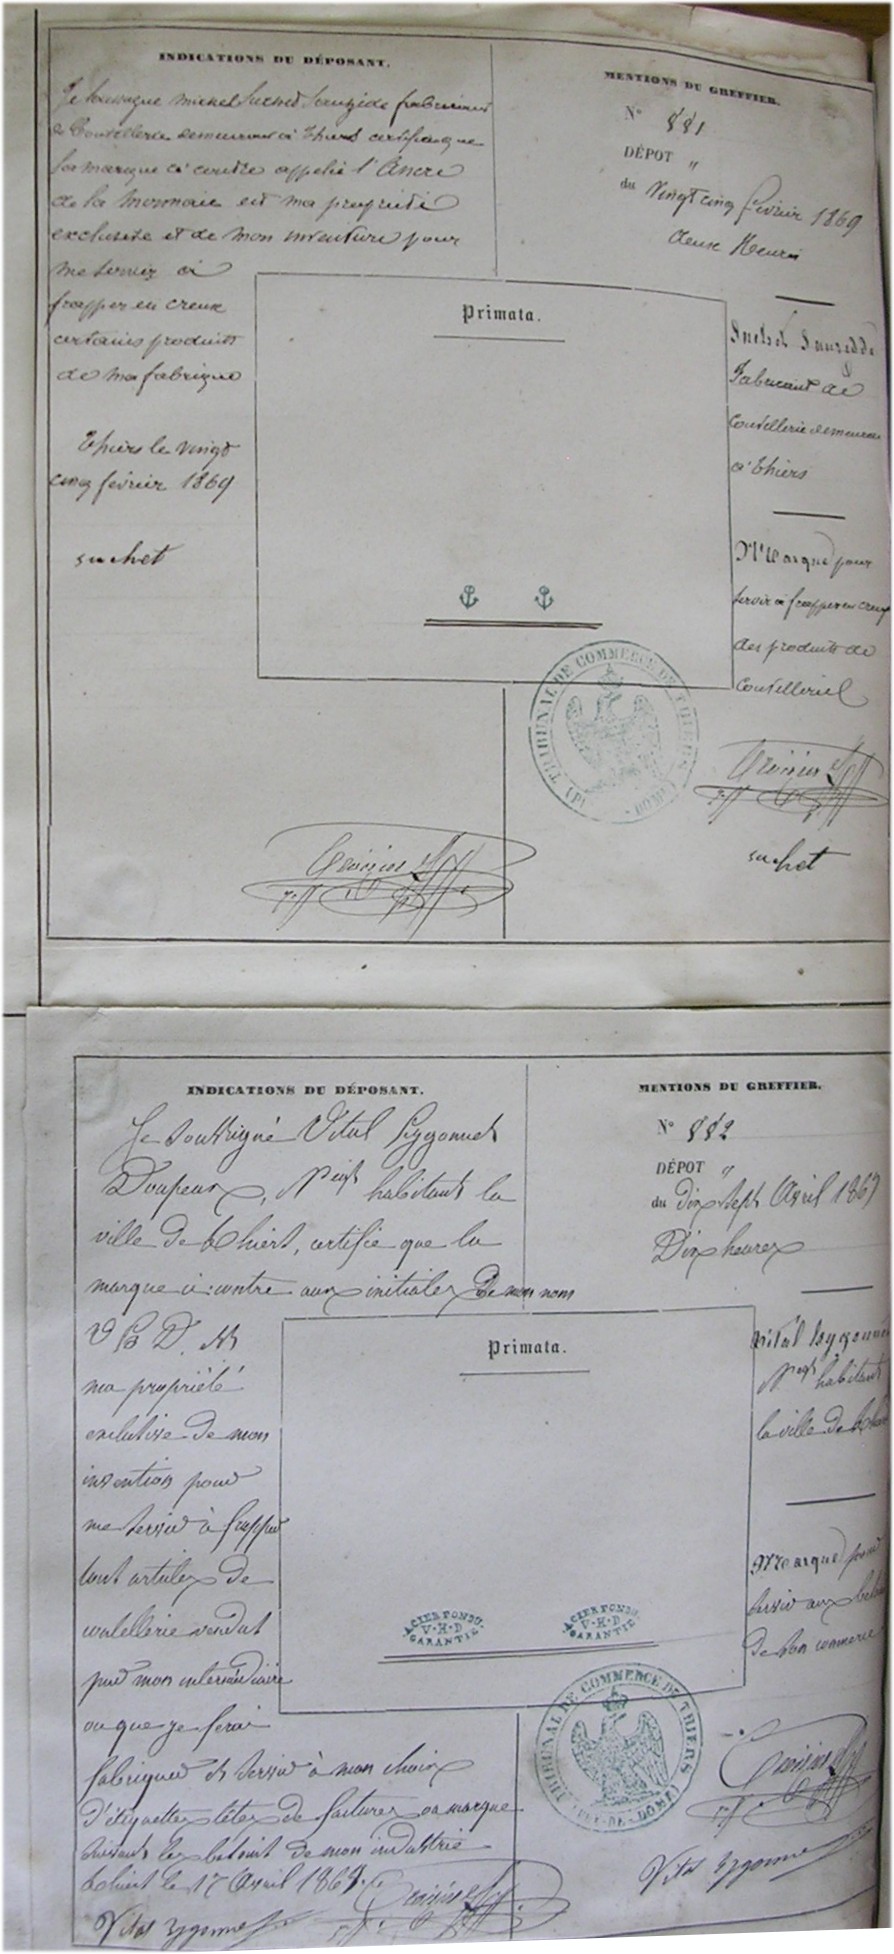 INDICATIONS DU DÉPOSANT.
Je soussigné michel Suchet fabricant
de Coutellerie demeurant à Thiers certifie que
la marque ci contre appelée l'Ancre
de la monnaie est ma propriété
exclusive et de mon invention pour
me servir à
frapper en creux
certains produits
de ma fabrique
Thiers le vingt
cinq février 1869
suchet
MENTIONS DU GREFFIER.
N° 881
DÉPOT "
du vingt cinq février 1869
deux heures
Primata.
Suchet
Fabricant de
Coutellerie demeurant
à Thiers
Marque pour
servir à frapper en creux
des produits de
Coutellerie
TRIBUNAL DE COMMERCE DE THIERS
suchet
INDICATIONS DU DÉPOSANT.
Je soussigné Vital
habitant la
ville de Thiers, certifie que la
marque ci-contre aux initiales de mon nom
ma propriété
exclusive de mon
invention pour
me servir à frapper
tout articles de
coutellerie vendus
par mon intermédiaire
ou que je ferai
fabriquer et servir à mon choix
d'étiquettes têtes de factures ou marque
suivant les besoins de mon industrie
Thiers le 17 Avril 1869
Vital
MENTIONS DU GREFFIER.
N° 882
DÉPOT "
du dix sept Avril 1869
Dix heures
Primata.
ACIER FONDU
V·H·D
GARANTIE
ACIER FONDU
V·H·D
GARANTIE
Vital
habitant
la ville de Thiers
Marque pour
servir aux besoins
de son commerce
TRIBUNAL DE COMMERCE DE THIERS (PUY-DE-DOME)
Vital